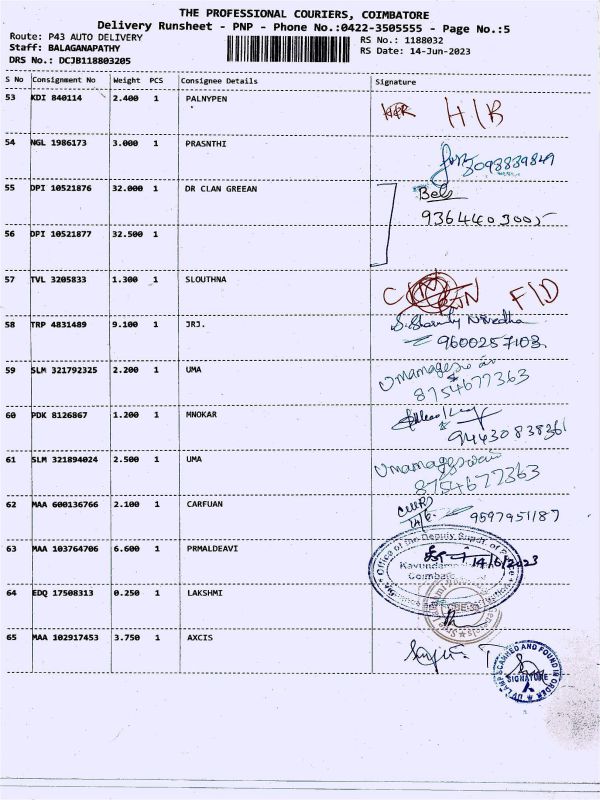 THE PROFESSIONAL COURIERS, COIMBATORE
Delivery Runsheet - PNP - Phone No.:0422-3505555 - Page No.:5
Route: P43 AUTO DELIVERY
RS No.: 1188032
Staff: BALAGANAPATHY
RS Date: 14-Jun-2023
DRS No.: DCJB118803205
S No Consignment No Weight PCS Consignee Details Signature
53 KDI 840114 2.400 1 PALNYPEN H/B
54 NGL 1986173 3.000 1 PRASNTHI
55 DPI 10521876 32.000 1 DR CLAN GREEAN
9364403005
56 DPI 10521877 32.500 1
57 TVL 3205833 1.300 1 SLOUTHNA F/D
58 TRP 4831489 9.100 1 JRJ.
9600257103
59 SLM 321792325 2.200 1 UMA
8754677363
60 PDK 8126867 1.200 1 MNOKAR
9443083836
61 SLM 321894024 2.500 1 UMA
8754677363
62 MAA 600136766 2.100 1 CARFUAN 9597951187
63 MAA 103764706 6.600 1 PRMALDEAVI 14/6/2023
Office of the Deputy Supdt. of
Coimbatore
64 EDQ 17508313 0.250 1 LAKSHMI
65 MAA 102917453 3.750 1 AXCIS
SCANNED AND FOUND IN ORDER
SIGNATURE